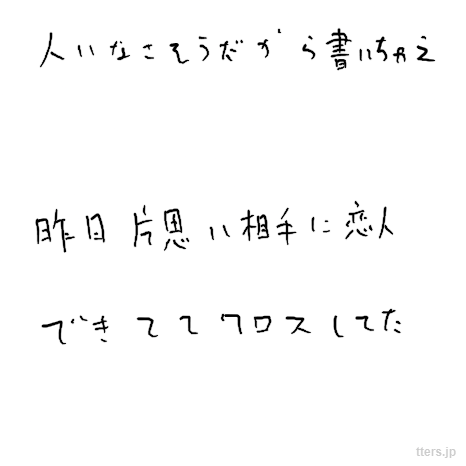 人いなさそうだから書いちゃえ
昨日片思い相手に恋人
できててクロスしてた
tters.jp